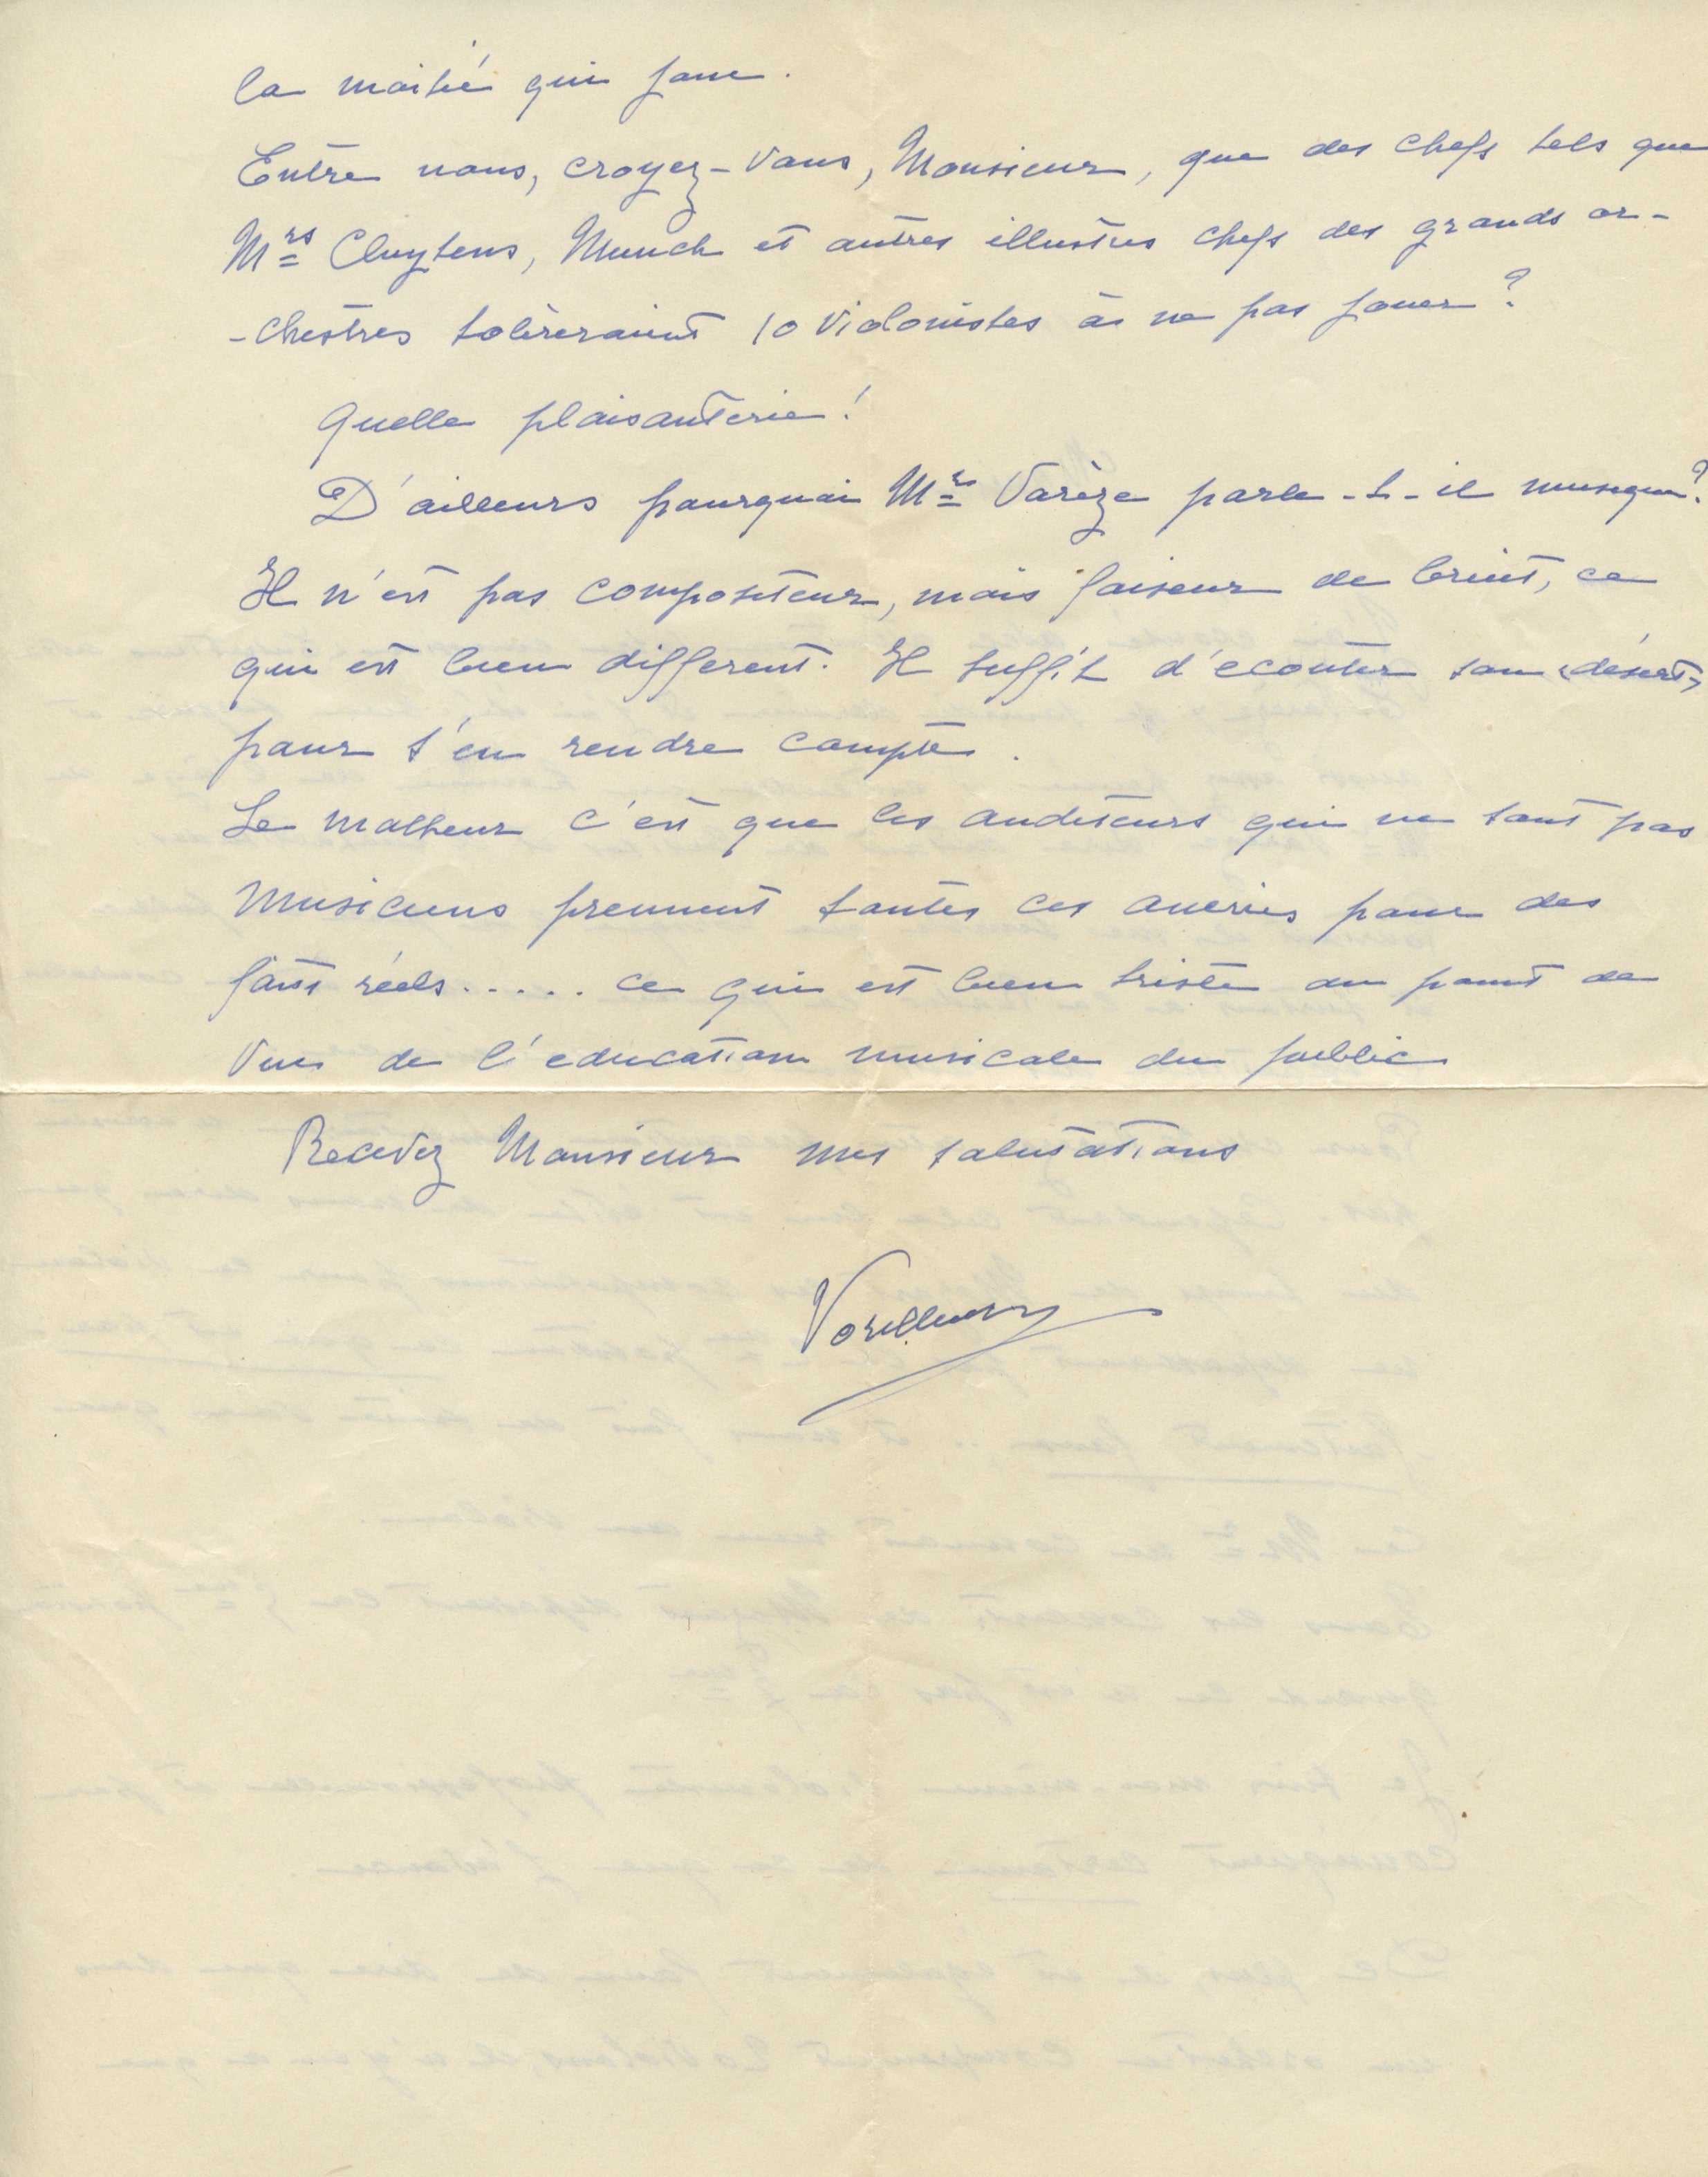 la moitié qui joue.
Entre nous, croyez-vous, Monsieur, que des chefs tels que
Mrs Cluytens, Munch et autres illustres chefs des grands or-
-chestres toléreraient 10 violonistes à ne pas jouer ?
Quelle plaisanterie !
D'ailleurs pourquoi Mr Varèze parle-t-il musique ?
Il n'est pas compositeur, mais faiseur de bruit, ce
qui est bien different. Il suffit d'ecouter son "désert"
pour s'en rendre compte.
Le malheur c'est que les auditeurs qui ne sont pas
musiciens prennent toutes ces aneries pour des
faits réels..... ce qui est bien triste au point de
vue de l'education musicale du public
Recevez Monsieur mes salutations